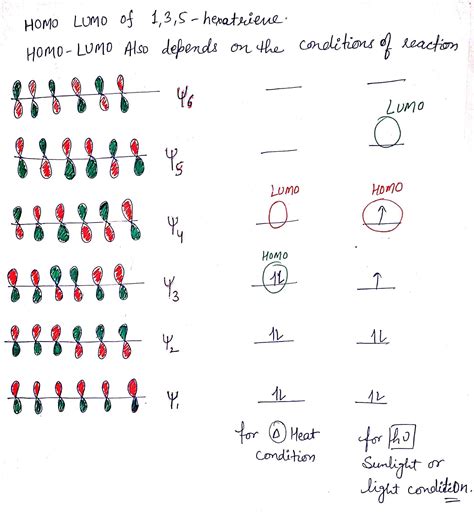 HOMO LUMO of 1,3,5-hexatriene.
HOMO-LUMO Also depends on the conditions of reaction
Ψ6
LUMO
Ψ5
LUMO
HOMO
Ψ4
↑
HOMO
Ψ3
⇅
↑
Ψ2
⇅
⇅
Ψ1
⇅
⇅
for Δ Heat
condition
for hυ
Sunlight or
light condition.